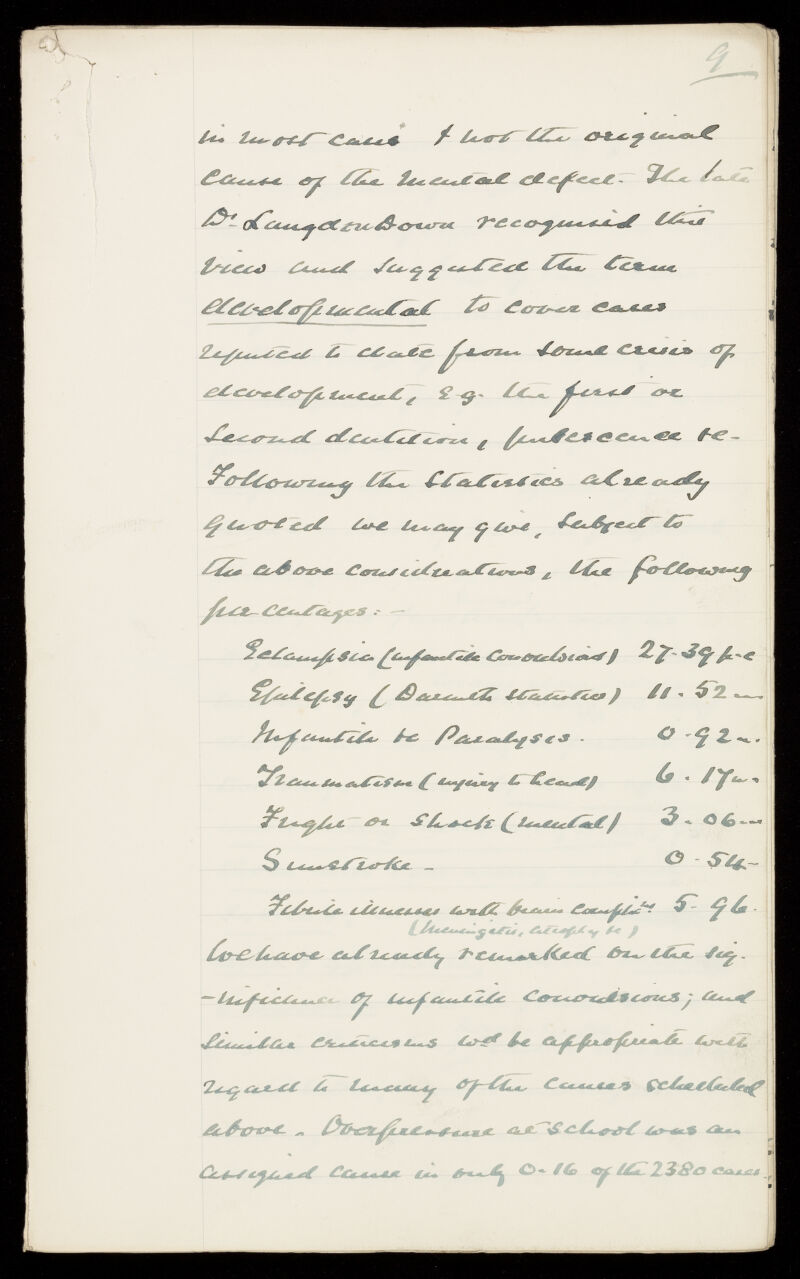 9
in most cases & not the original
cause of the mental defect. The late
Dr. Langdon Down recognised this
view and suggested the term
developmental to cover cases
reputed to date from some crisis of
development, e.g. the first or
second dentition, pubescence &c-
Following the statistics already
quoted we may give, subject to
the above considerations, the following
percentages:-
Eclampsia (infantile convulsions) 27.39 p.c
Epilepsy (Darenth statistics) 11.52 "
Infantile &c Paralysis. 0.92 ".
Traumatism (injury to head) 6.17 "
Fright or Shock (mental) 3.06 "
Sunstroke - 0.54
Febrile illnesses with brain complicns 5.96.
(Meningitis, atrophy &c)
We have already remarked on the sig-
-nificance of infantile convulsions; and
similar criticisms wd be appropriate with
regard to many of the causes scheduled
above. Overpressure at school was an
assigned cause in only 0.16 of the 2380 cases.